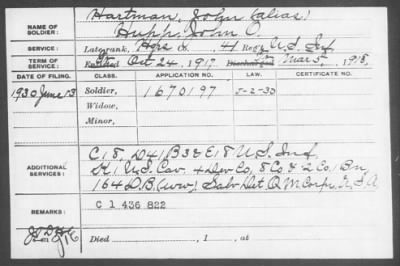 NAME OF SOLDIER: Hartman, John (alias)
Hupp, John O.
SERVICE: Late rank, Co. 41 Reg't U.S. Inf
TERM OF SERVICE: Enlisted Oct 24, 1917 Discharged Mar 5, 1918,
DATE OF FILING. CLASS. APPLICATION NO. LAW. CERTIFICATE NO.
1930 June 13 Soldier, 1670197 5-2-30
Widow,
Minor,
ADDITIONAL SERVICES: C 18, D 41 B 38 E 18 U.S. Inf
K 1 U.S. Cav. 4 Dev Co, 8 Co & 2 Co 1 Bn,
164 D.B. (WW), Salv Det Q M Corps, U.S.A
REMARKS: C 1 436 822
Died , 1 , at